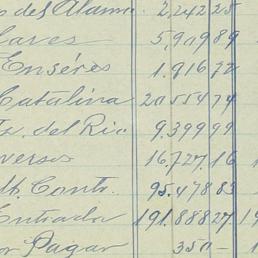 del Alamo 2,242 25
Lares 5,909 89
Enséres 1.916 72
Catalina 20 554 74
del Rio 9.399 99
versos 16.727.16
Contr. 95.478 83
Entrada 191.888 27
Pagar 350 —